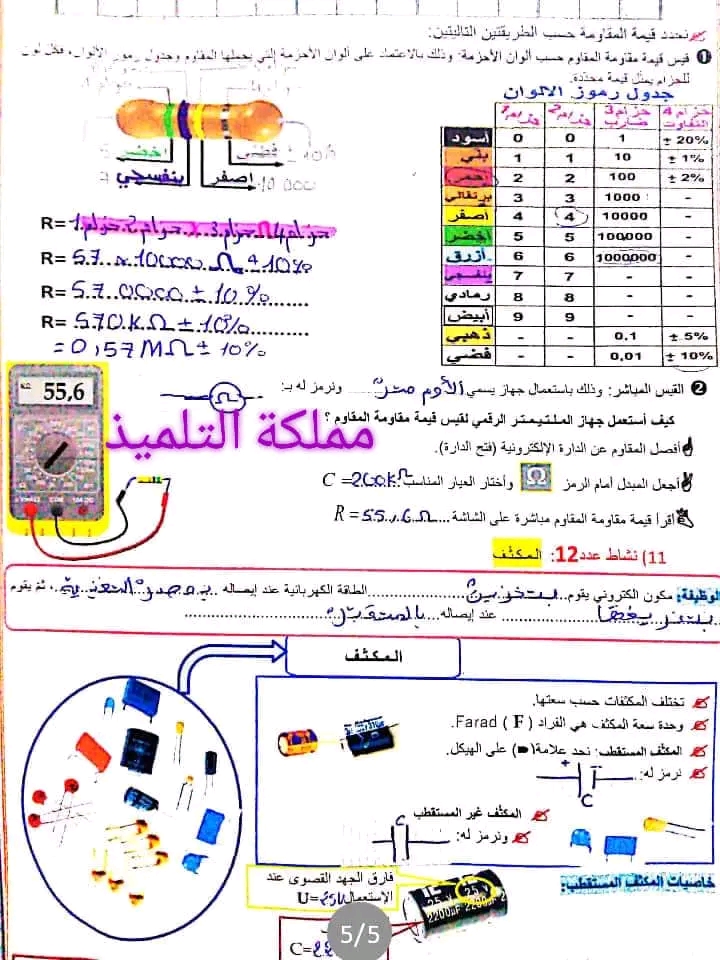 نحدد قيمة المقاومة حسب الطريقتين التاليتين:
❶ قيس قيمة مقاومة المقاوم حسب ألوان الأحزمة: وذلك بالاعتماد على ألوان الأحزمة التي يحملها المقاوم وجدول رموز الألوان، فكل لون
للحزام يمثل قيمة محددة.
جدول رموز الألوان
حزام1 حزام2 حزام3 ضارب حزام4 التفاوت
أسود 0 0 1 ± 20%
بني 1 1 10 ± 1%
أحمر 2 2 100 ± 2%
برتقالي 3 3 1000 -
أصفر 4 4 10000 -
أخضر 5 5 100000 -
أزرق 6 6 1000000 -
بنفسجي 7 7 - -
رمادي 8 8 - -
أبيض 9 9 - -
ذهبي - - 0,1 ± 5%
فضي - - 0,01 ± 10%
5 أخضر فضي ± 10%
7 بنفسجي أصفر 10 000
R= حزام1 حزام2 x حزام3 Ω حزام4
R= 57 x 10000 Ω ± 10%
R= 570000 ± 10%
R= 570 KΩ ± 10%
= 0,57 MΩ ± 10%
❷ القيس المباشر: وذلك باستعمال جهاز يسمى الأوم متر ونرمز له بـ: Ω
55,6
كيف أستعمل جهاز الملتيمتر الرقمي لقيس قيمة مقاومة المقاوم ؟
مملكة التلميذ
أفصل المقاوم عن الدارة الإلكترونية (فتح الدارة).
أجعل المبدل أمام الرمز Ω وأختار العيار المناسب C =200kΩ
أقرأ قيمة مقاومة المقاوم مباشرة على الشاشة R = 55,6 Ω
11) نشاط عدد12: المكثف
الوظيفة: مكون الكتروني يقوم بتخزين الطاقة الكهربائية عند إيصاله بمصدر التغذية، ثم يقوم
بتفريغها عند إيصاله بالمستقبل
المكثف
تختلف المكثفات حسب سعتها.
وحدة سعة المكثف هي الفراد ( F ) Farad.
المكثف المستقطب: نجد علامة (-) على الهيكل.
نرمز له: + - C
المكثف غير المستقطب
ونرمز له: C
خاصيات المكثف المستقطب:
فارق الجهد القصوى عند
الإستعمال U=25V
25 V 25 V
2200µF 2200µF
C=22
5/5